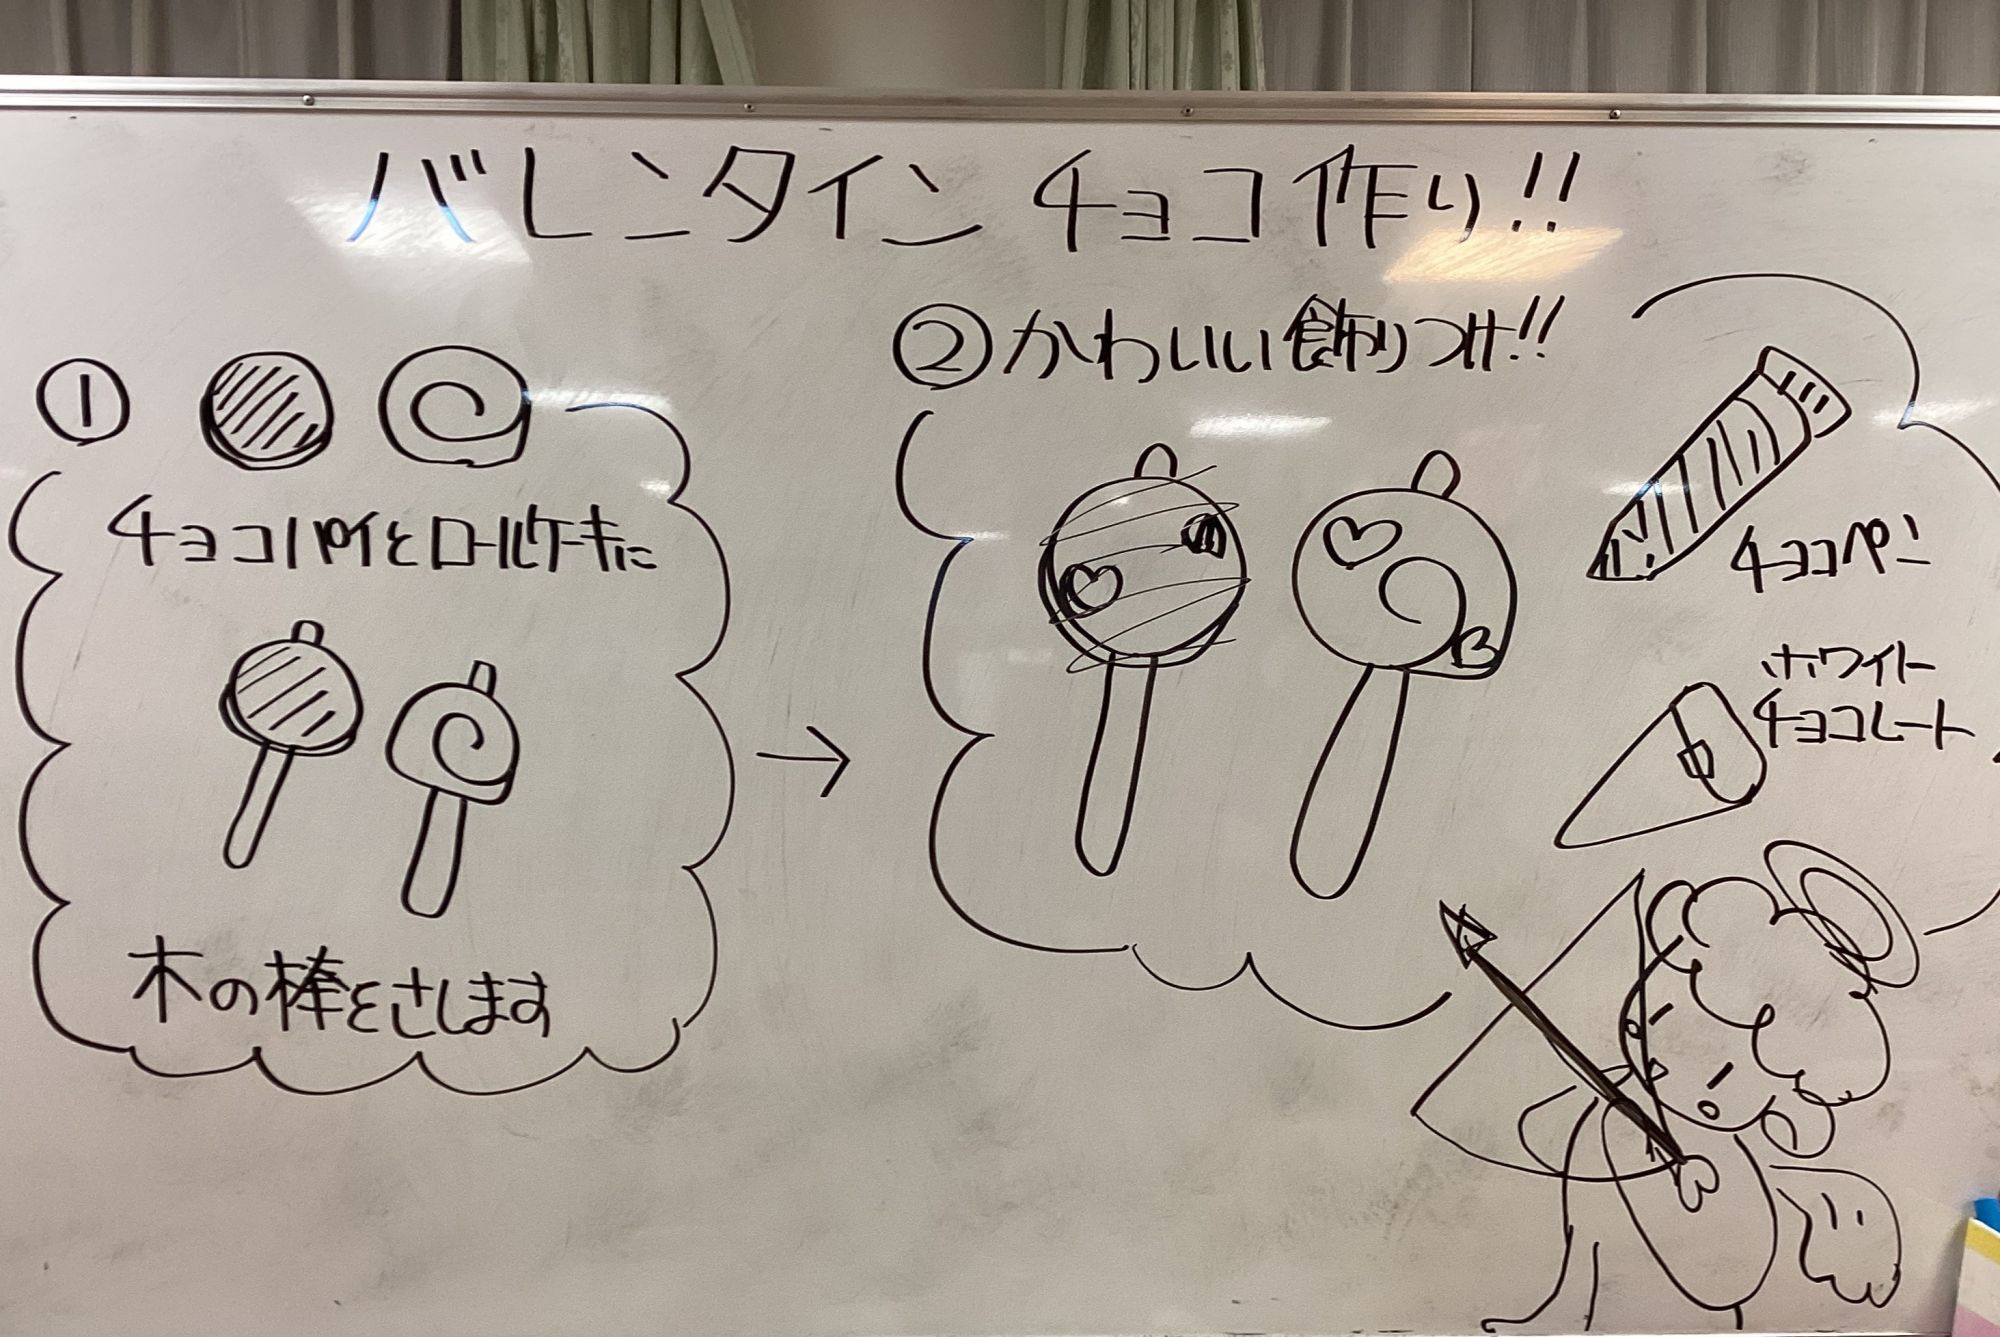 バレンタインチョコ作り!!
①
チョコパイとロールケーキに
木の棒をさします
②かわいい飾りつけ!!
チョコペン
ホワイト
チョコレート